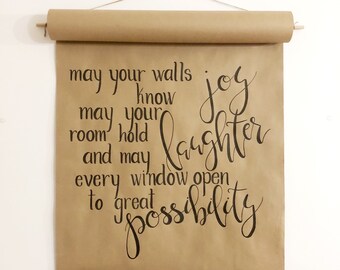 may your walls
know joy
may your
room hold laughter
and may
every window open
to great
possibility